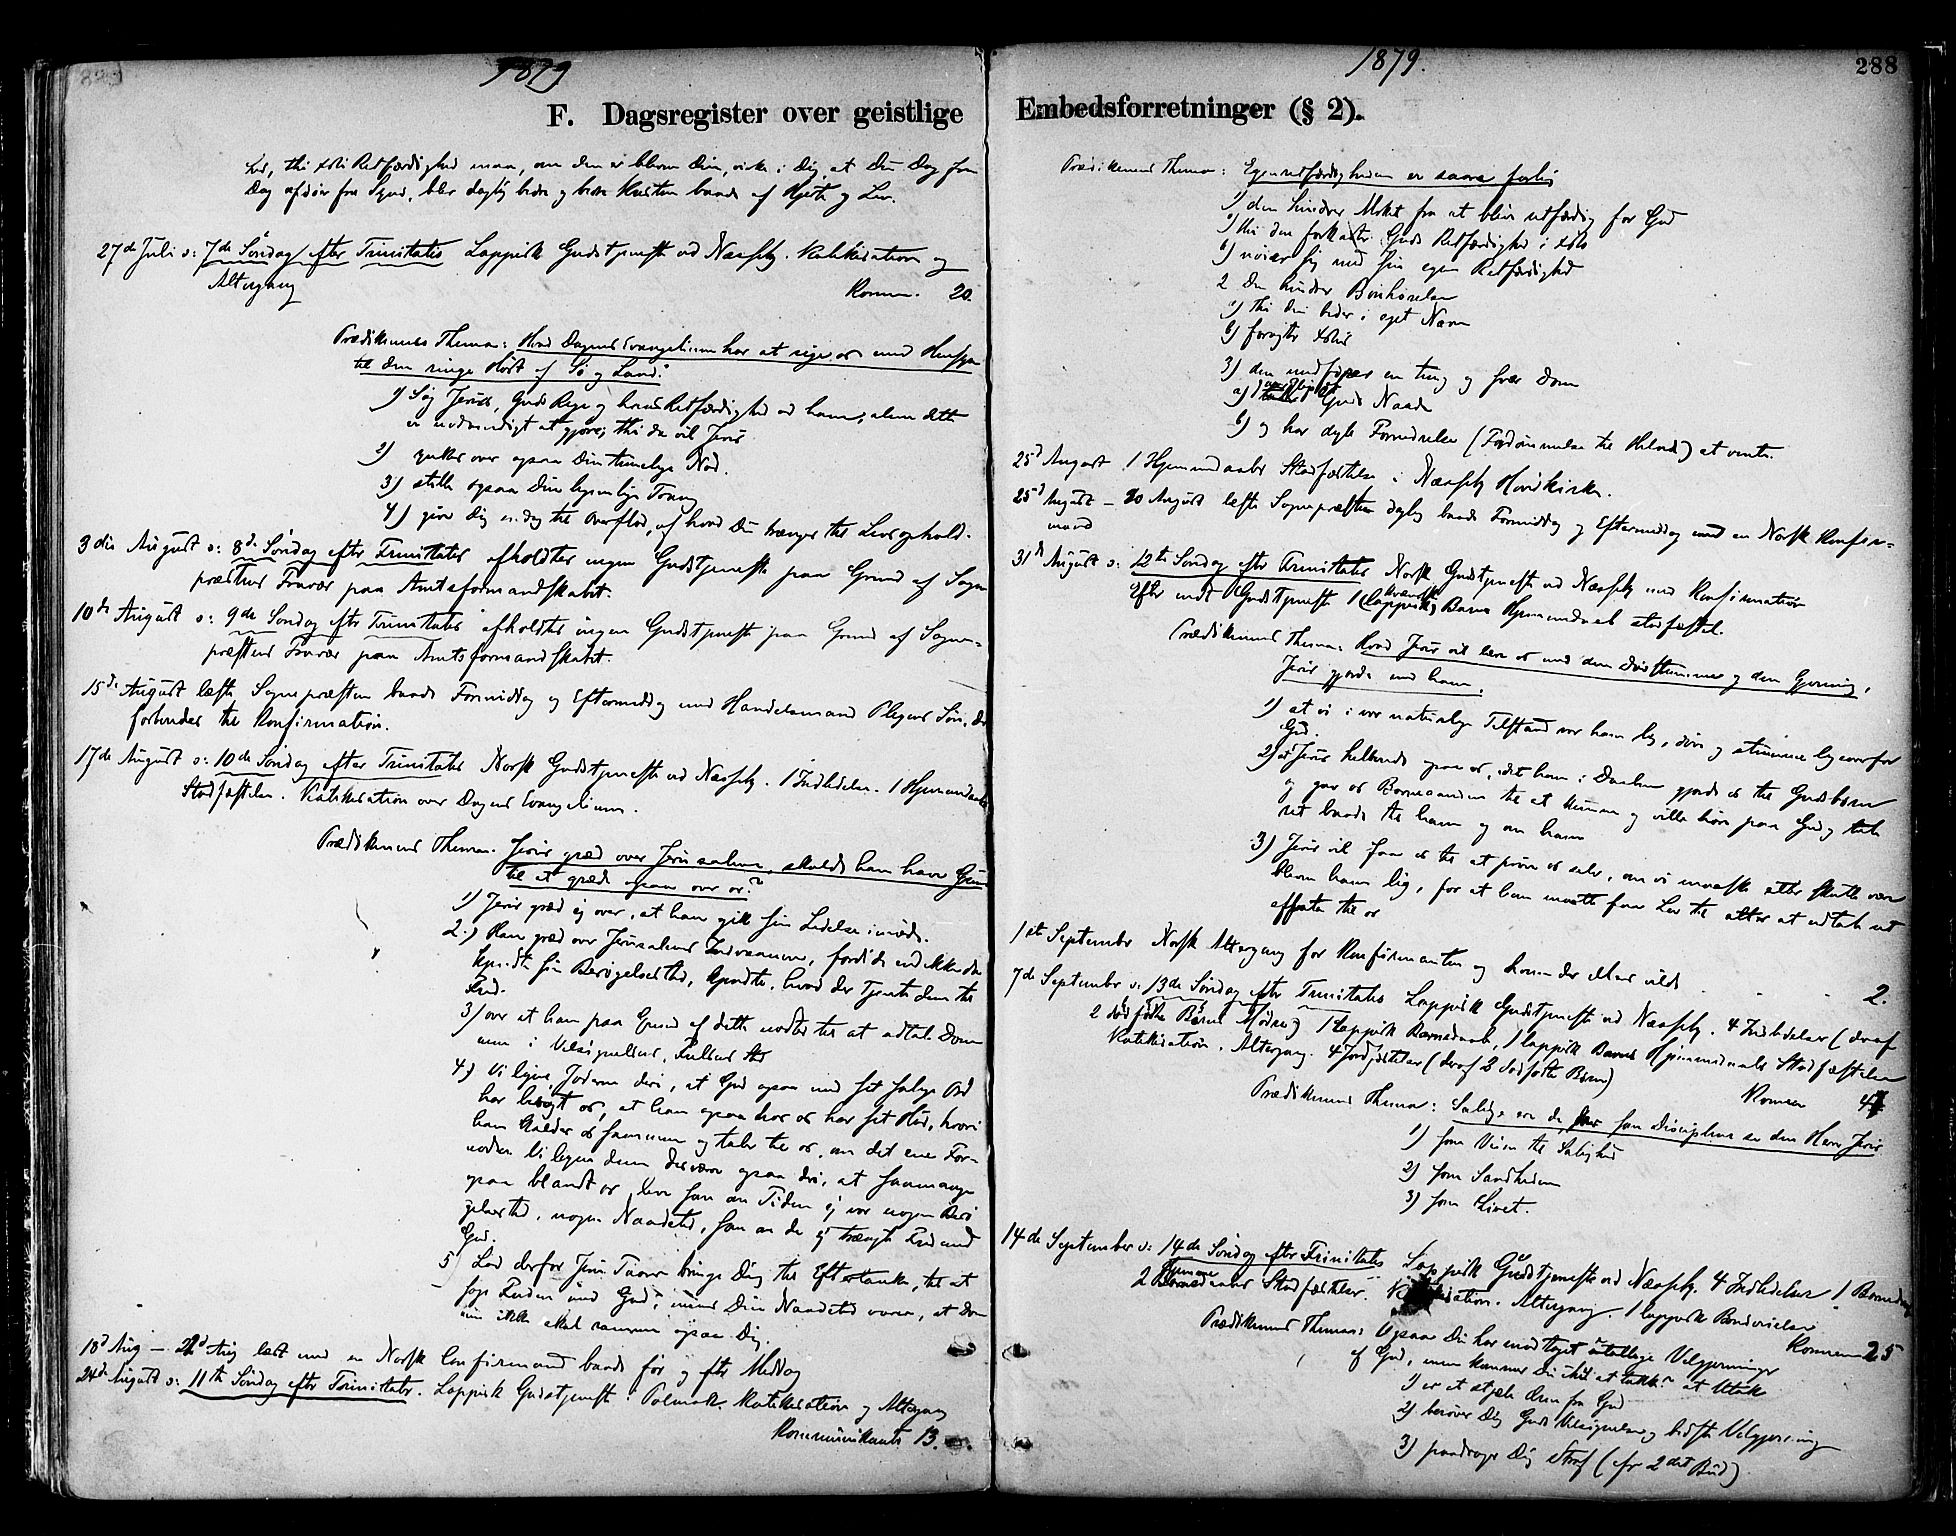 1879
F. Dagsregister over geistlige
Lid, thi Xsti Retfærdighed maa, om den er bleven Din, virke i Dig, at Du Dag for
Dag afdør fra Synd, blir daglig bedre og bedre Kristen baade af Hjerte og Lev.
27de Juli ɔ: 7de Søndag efter Trinitatis Lappisk Gudstjeneste ved Næsseby. Katekisation og
Altergang
Komm. 20.
Prædikenens Thema: Hvad Dagens Evangelium har at sige os med Hensyn
til den ringe Høst af Sø og Land:
1) Søg Jesus, Guds Rige og hans Retfærdighed ved ham, alene dette
er nødvendigt at gjøre; thi da vil Jesus
2) ynkes over ogsaa Din timelige Nød.
3) stille ogsaa Din legemlige Trang
4) give Dig endog til Overflod, af hvad Du trænger til Livsophold.
3die August ɔ: 8de Søndag efter Trinitatis afholdtes ingen Gudstjeneste paa Grund af Sogne
præstens Fravær paa Amtsformandskabet.
10de August ɔ: 9de Søndag efter Trinitatis afholdtes ingen Gudstjeneste paa Grund af Sogne-
præstens Fravær paa Amtsformandskabet.
15de August læste Sognepræsten baade Formiddag og Eftermiddag med Handelsmand Plejens Søn, der
forberedes til Konfirmation.
17de August ɔ: 10de Søndag efter Trinitatis Norsk Gudstjeneste ved Næsseby. 1 Indledelse. 1 Hjemmedaabs
Stadfæstelse. Katekisation over Dagens Evangelium.
Prædikenens Thema. Jesus græd over Jerusalem, skulde han have Grund
til at græde ogsaa over os?
1) Jesus græd ej over, at han gik sin Lidelse imøde.
2.) Han græd over Jerusalems Indvaanere, fordi de end ikke da
kjendte sin Besøgelsestid, kjendte, hvad der tjente dem til
Fred.
3) over at han paa Grund af dette nødtes til at udtale Dom
men i Velsignelsens, Fuldens Sted
4) Vi ligne Jøderne deri, at Gud ogsaa med sit hellige Ord
har besøgt os, at han ogsaa hos os har sit Hus, hvori
han kalder os sammen og taler til os, om det ene For-
nødne. Vi ligne dem desværre ogsaa deri, at saa mange
ogsaa blandt os leve som om Tiden ej var nogen Besø
gelsestid, nogen Naadetid, som om de ej trængte Fred med
Gud.
5) Lad derfor Jesu Taarer bringe Dig til Eftertanke, til at
søge Freden med Gud, mens Din Naadetid varer, at Dom
men ikke skal ramme ogsaa Dig.
18de Aug – 22de Aug læst med en Norsk Confirmand baade før og efter Middag
24de August ɔ: 11te Søndag efter Trinitatis. Lappisk Gudstjeneste i Polmak. Katekisation og Altergang
Kommunikanter 13.
1879.
288
Embedsforretninger (§ 2).
Prædikenens Thema: Egenretfærdigheden er saare farlig
1) den hindrer Mskt fra at blive retfærdig for Gud
a) thi den forkaster Guds Retfærdighed i Xsto
b) nøier sig med sin egen Retfærdighed
2 Den hindrer Bønhørelse
a) thi den beder i eget Navn
b) foragter Xstus
3) den medfører en tung og svær Dom
a) Guds Naade
b) og har dybe Fornedrelse (Fordømmelse til Helvede) at vente.
25de August 1 Hjemmedaabs Stadfæstelse i Næsseby Hovedkirke.
25de August – 30 August læste Sognepræsten daglig baade Formiddag og Eftermiddag med en Norsk Konfir-
mand
31te August ɔ: 12te Søndag efter Trinitatis Norsk Gudstjeneste ved Næsseby med Konfirmation
Efter endt Gudstjeneste 1 (lappisk) kvænsk Barns Hjemmedaab stadfæstet.
Prædikenens Thema. Hvad Jesus vil lære os med den Døvstumme og den Gjerning,
Jesus gjorde med ham.
1) at vi i vor naturlige Tilstand var ham lig, døve og stumme ligeoverfor
Gud.
2) at Jesus helbrede ogsaa os, idet han i Daaben gjorde os til Gudsbørn
og gav os Børneaanden til at kunne og ville høre paa Gud og tale
ret baade til ham og om ham
3) Jesus vil faa os til at prøve os selv, om vi maaske atter skulle være
bleven ham lig, for at han maatte faa Lov til atter at udtale sit
effata til os
1ste September Norsk Altergang for Konfirmanten og hvem der ellers vilde
2.
7de September ɔ: 13de Søndag efter Trinitatis Lappisk Gudstjeneste ved Næsseby. 4 Indledelser (deraf
2 dødfødte Børns Mødre) 1 lappisk Barnedaab, 1 lappisk Barns Hjemmedaabs Stadfæstelse
Katekisation. Altergang. 4 Jordfæstelser (deraf 2 dødfødte Børn)
Komm 47
Prædikenens Thema: Salige ere de som Disciplene se den Herre Jesus
1) som Veien til Salighed
2) som Sandheden
3) som Livet.
14de September ɔ: 14de Søndag efter Trinitatis Lappisk Gudstjeneste ved Næsseby. 4 Indledelser 1 Barnedaab
2 Hjemmedaabs Stadfæstelser. Katekisation. Altergang. 1 lappisk Brudevielse
Kommun 25
Prædikenens Thema: Ogsaa Du har modtaget utallige Velgjerninger
af Gud, men kommer Du ihu at takke? at utak
1) er at stjæle dem fra Gud
2) berøver Dig Guds Velsignelse og bedste Velgjerning
3) paadrager Dig Straf (cfr 2det Bud)